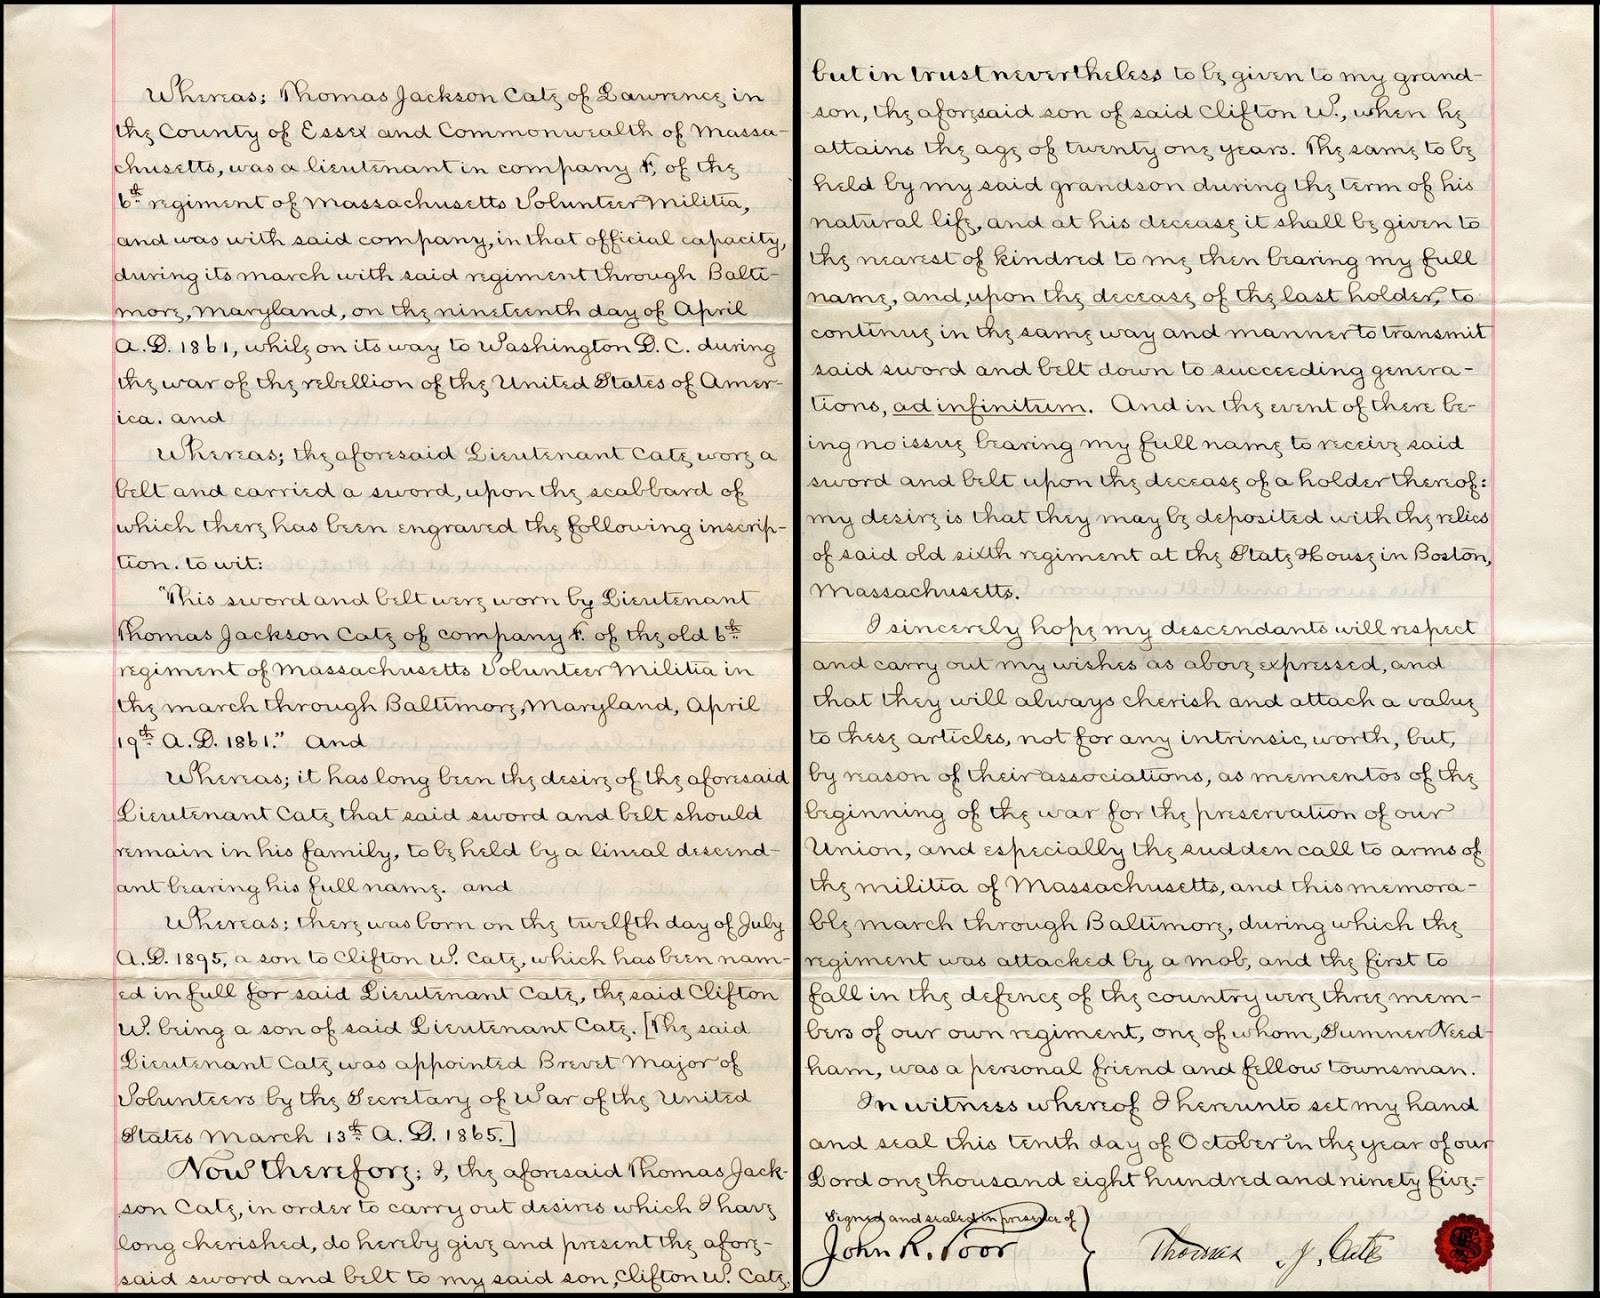 Whereas; Thomas Jackson Cate of Lawrence in
the County of Essex and Commonwealth of Massa-
chusetts, was a lieutenant in company F, of the
6th regiment of Massachusetts Volunteer Militia,
and was with said company, in that official capacity,
during its march with said regiment through Balti-
more, Maryland, on the nineteenth day of April
A.D. 1861, while on its way to Washington D.C. during
the war of the rebellion of the United States of Amer-
ica. and
Whereas; the aforesaid Lieutenant Cate wore a
belt and carried a sword, upon the scabbard of
which there has been engraved the following inscrip-
tion. to wit:
"This sword and belt were worn by Lieutenant
Thomas Jackson Cate of company F. of the old 6th
regiment of Massachusetts Volunteer Militia in
the march through Baltimore, Maryland, April
19th A.D. 1861." And
Whereas; it has long been the desire of the aforesaid
Lieutenant Cate that said sword and belt should
remain in his family, to be held by a lineal descend-
ant bearing his full name. and
Whereas; there was born on the twelfth day of July
A.D. 1895, a son to Clifton W. Cate, which has been nam-
ed in full for said Lieutenant Cate, the said Clifton
W. being a son of said Lieutenant Cate. [The said
Lieutenant Cate was appointed Brevet Major of
Volunteers by the Secretary of War of the United
States March 13th A.D. 1865.]
Now therefore; I, the aforesaid Thomas Jack-
son Cate, in order to carry out desires which I have
long cherished, do hereby give and present the afore-
said sword and belt to my said son, Clifton W. Cate,
but in trust nevertheless to be given to my grand-
son, the aforesaid son of said Clifton W., when he
attains the age of twenty one years. The same to be
held by my said grandson during the term of his
natural life, and at his decease it shall be given to
the nearest of kindred to me then bearing my full
name, and, upon the decease of the last holder, to
continue in the same way and manner to transmit
said sword and belt down to succeeding genera-
tions, ad infinitum. And in the event of there be-
ing no issue bearing my full name to receive said
sword and belt upon the decease of a holder thereof:
my desire is that they may be deposited with the relics
of said old sixth regiment at the State House in Boston,
Massachusetts.
I sincerely hope my descendants will respect
and carry out my wishes as above expressed, and
that they will always cherish and attach a value
to these articles, not for any intrinsic worth, but,
by reason of their associations, as mementos of the
beginning of the war for the preservation of our
Union, and especially the sudden call to arms of
the militia of Massachusetts, and this memora-
ble march through Baltimore, during which the
regiment was attacked by a mob, and the first to
fall in the defence of the country were three mem-
bers of our own regiment, one of whom, Sumner Need-
ham, was a personal friend and fellow townsman.
In witness whereof I hereunto set my hand
and seal this tenth day of October in the year of our
Lord one thousand eight hundred and ninety five.-
Signed and sealed in presence of }
John R. Poor Thomas J. Cate